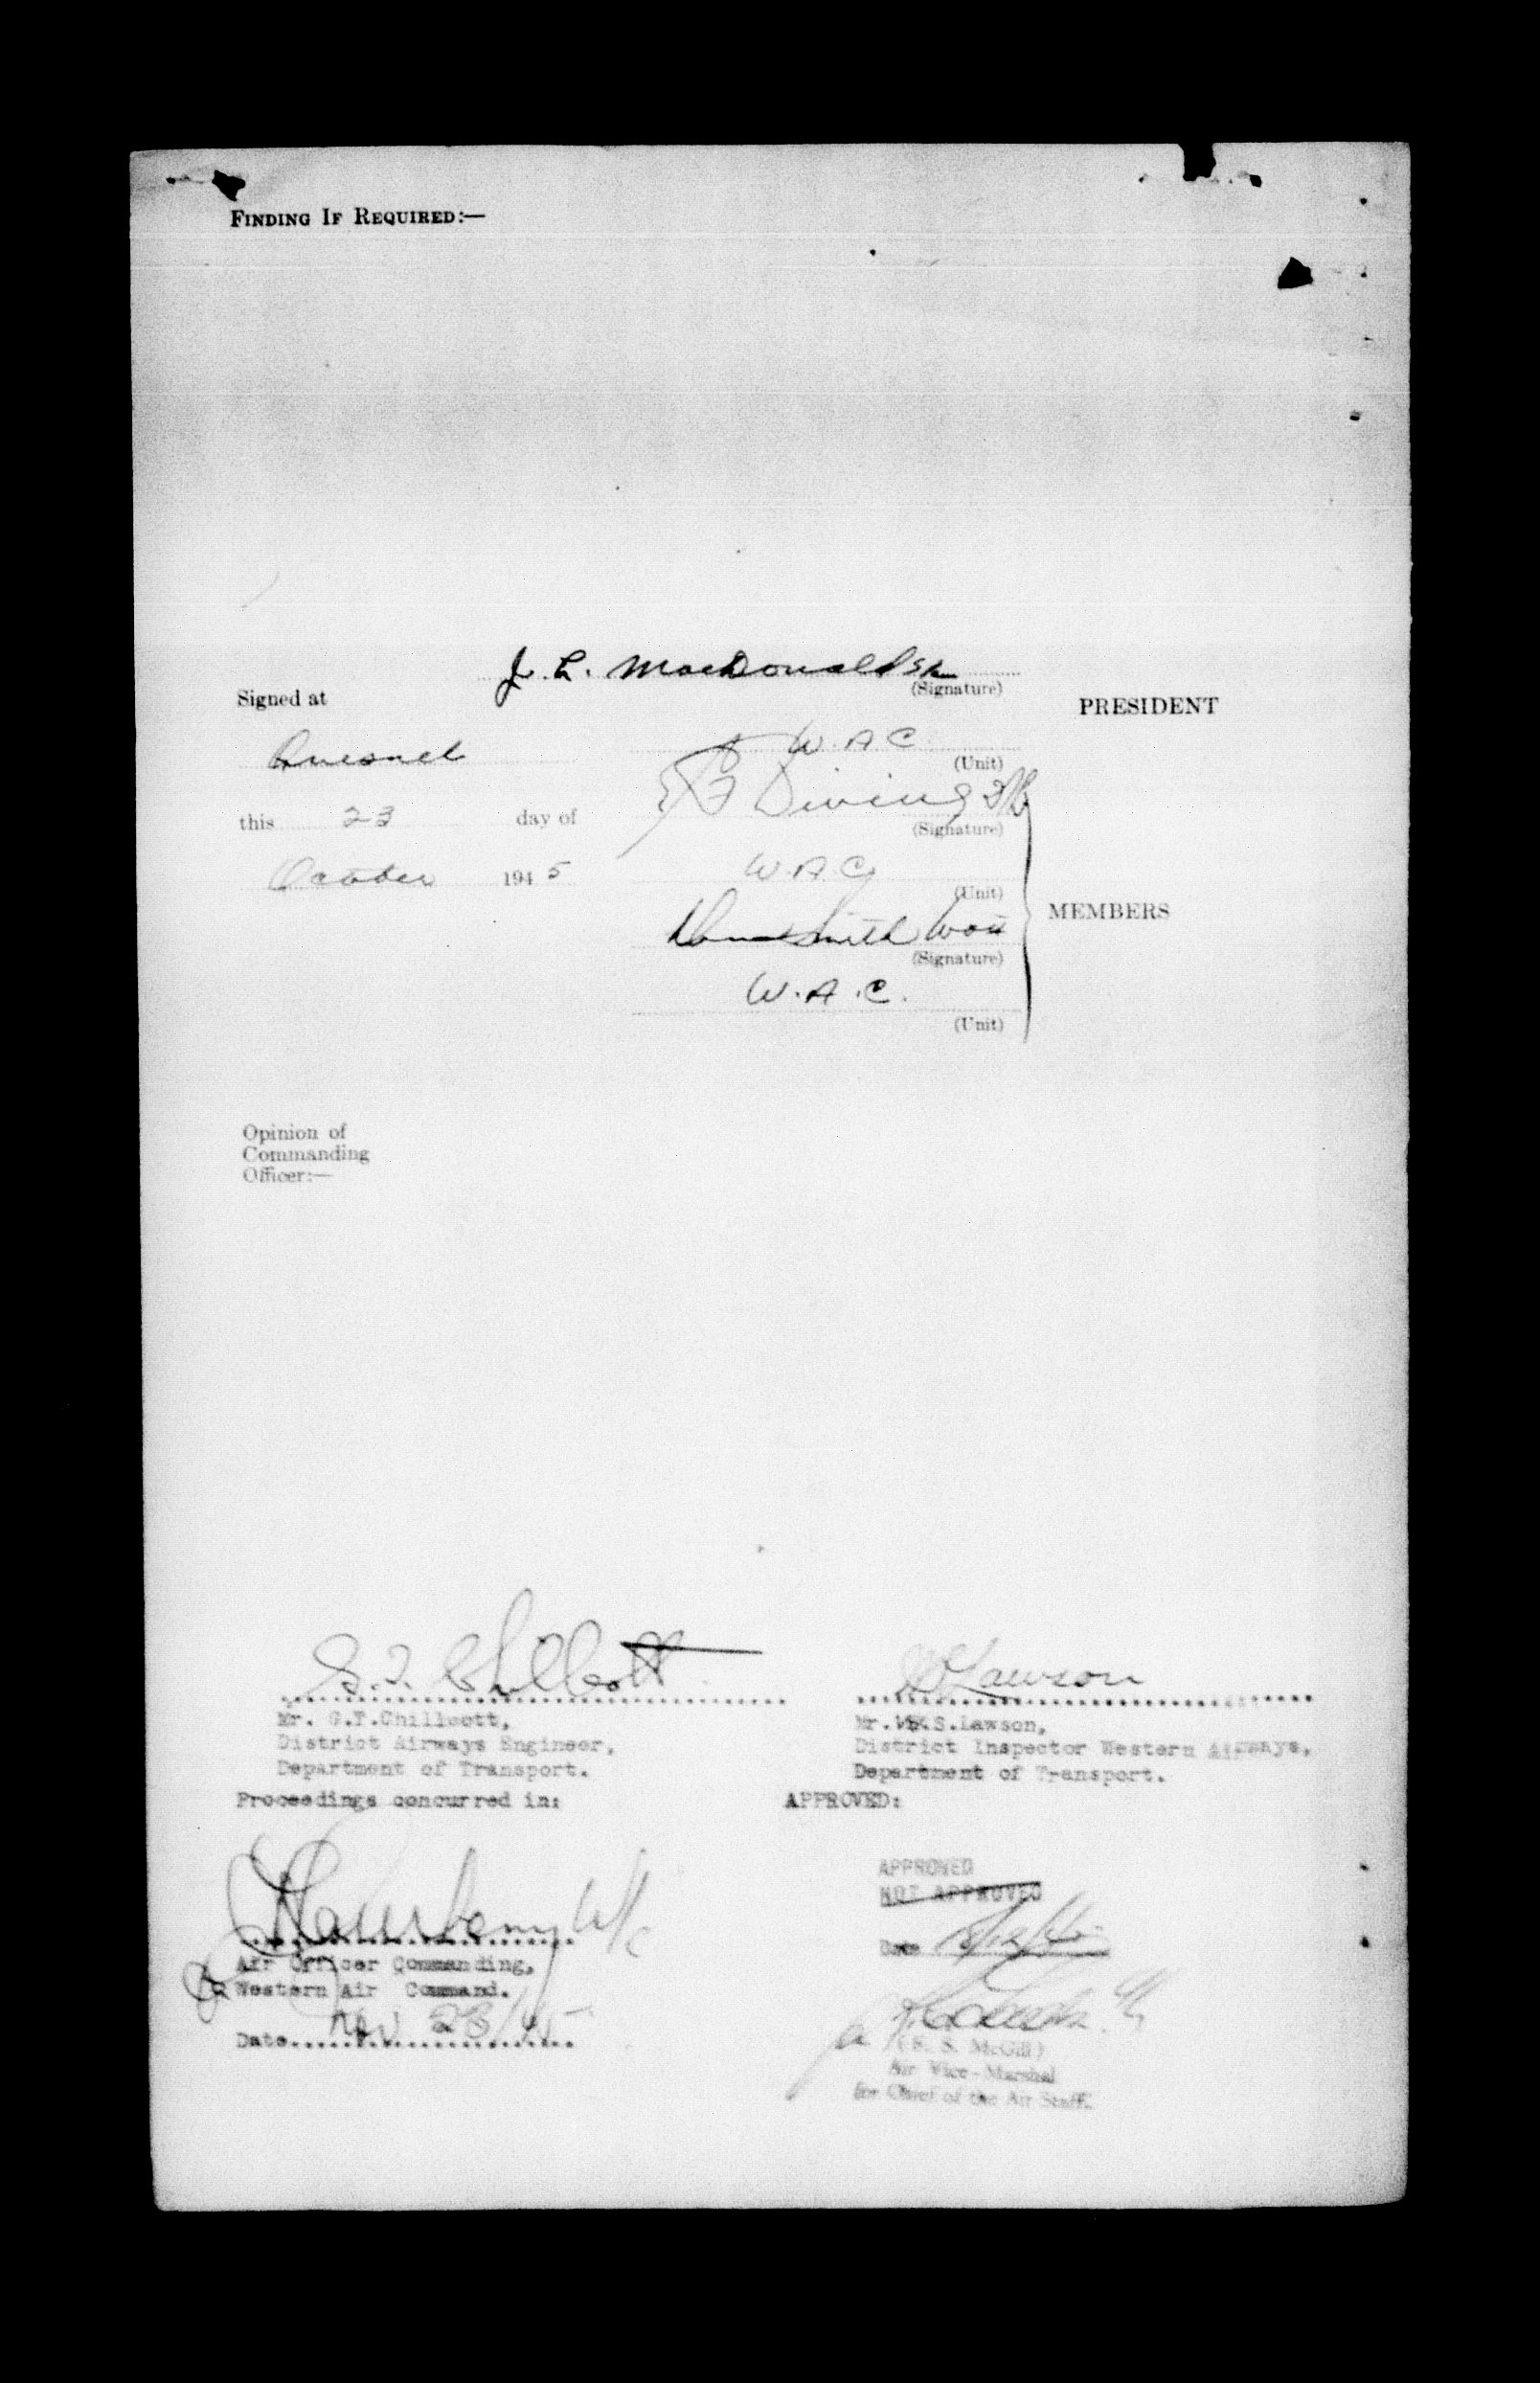 FINDING IF REQUIRED:—
J. L. MacDonald S/L
(Signature)
Signed at
PRESIDENT
W. A C
(Unit)
Quesnel
Diving
(Signature)
this 23 day of
W. A. C.
(Unit)
October 1945
MEMBERS
Smith
(Signature)
W. A. C.
(Unit)
Opinion of
Commanding
Officer:—
G.T. Chillcott
Lawson
Mr. G.T.Chillcott,
District Airways Engineer,
Department of Transport.
Mr. S.Lawson,
District Inspector Western Airways,
Department of Transport.
Proceedings concurred in:
APPROVED:
APPROVED
NOT APPROVED
W/C
Air Officer Commanding,
Western Air Command.
Date Nov 28/45
Date
(F. S. McGill)
Air Vice-Marshal
for Chief of the Air Staff.